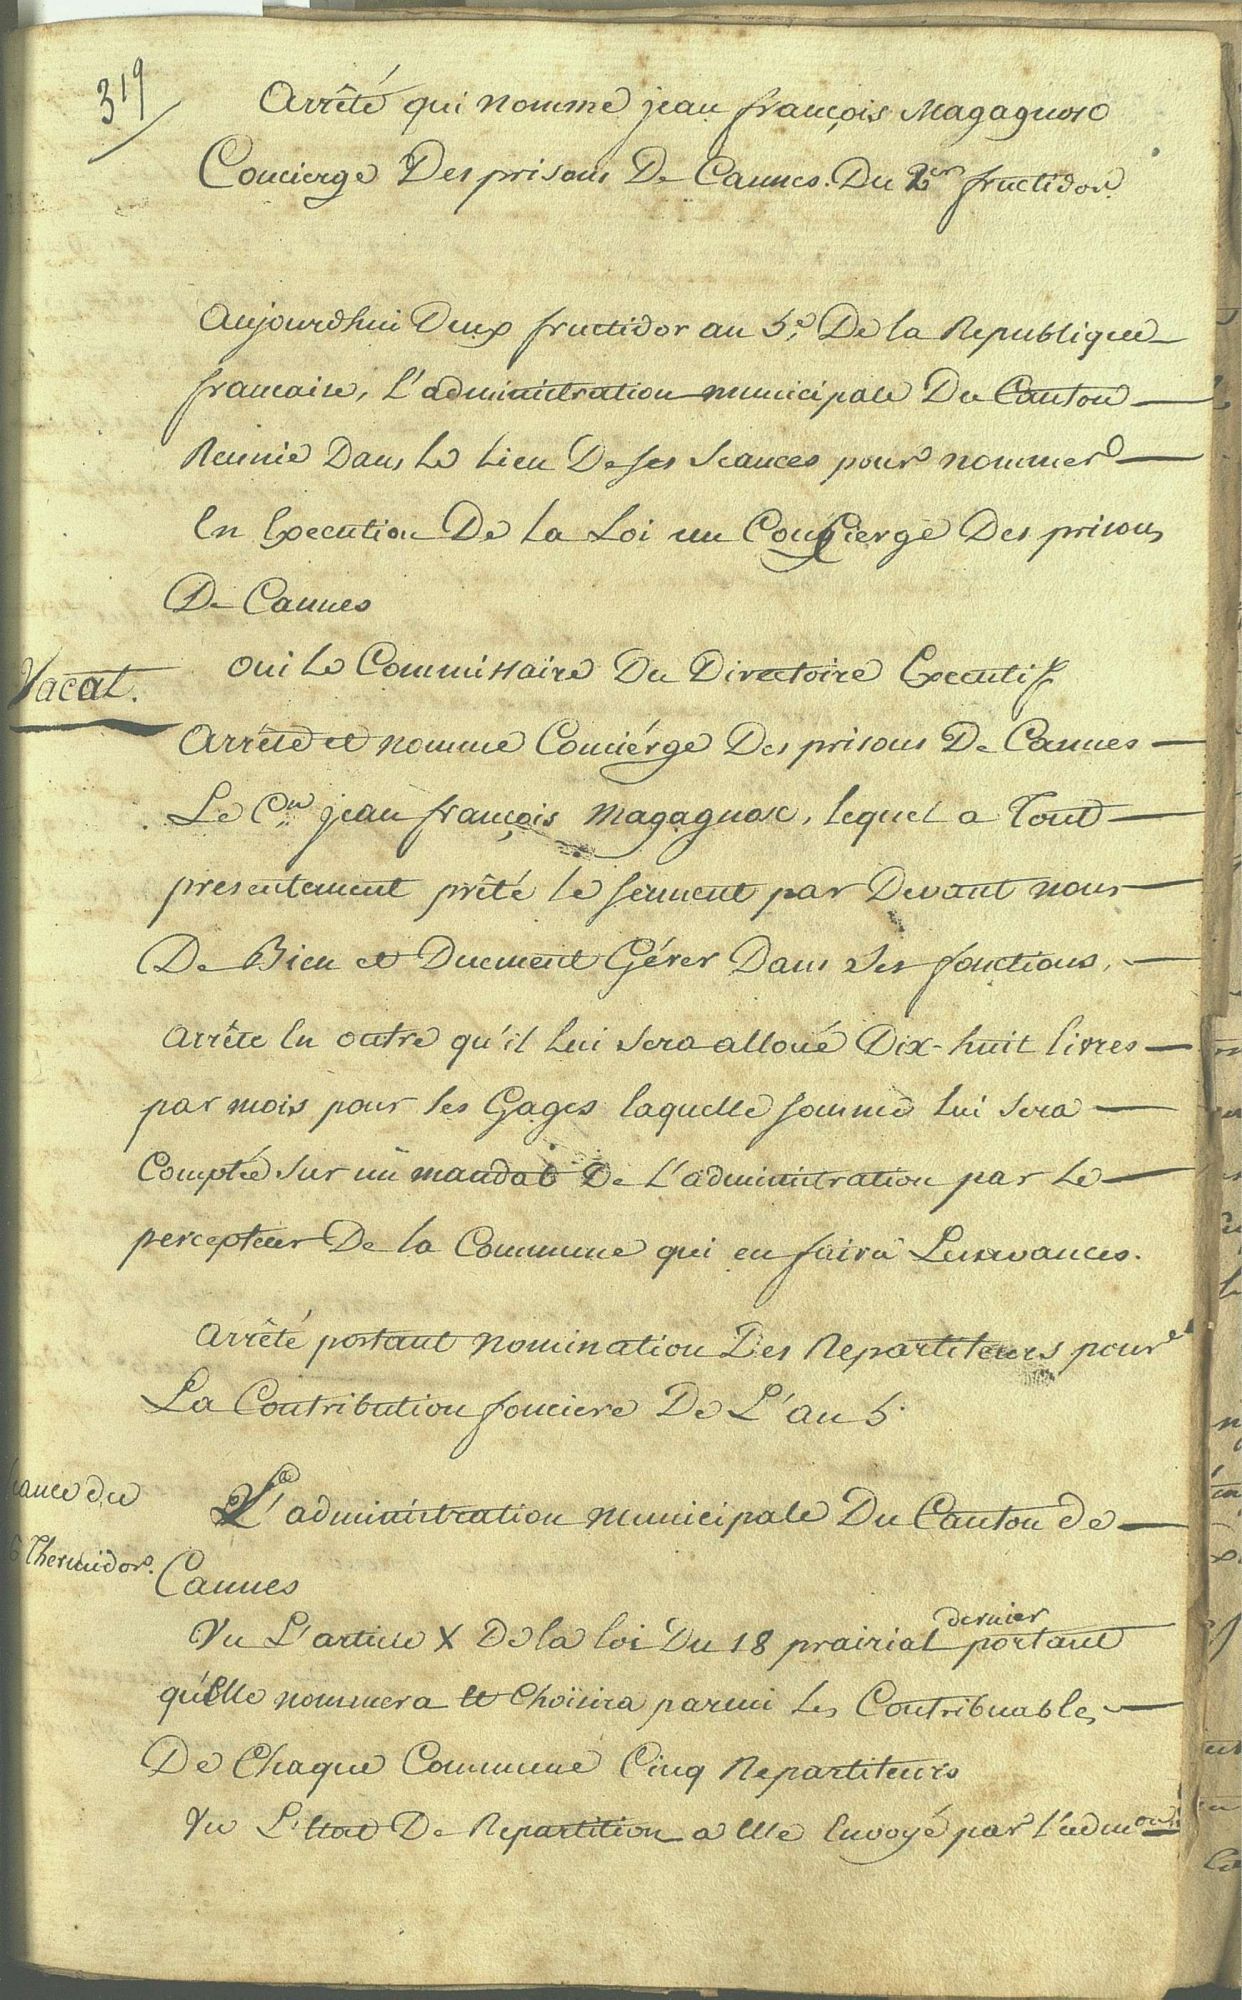 319
Arrêté qui nomme jean françois Magagnosc
Concierge Des prisons De Cannes. Du 2er fructidor
Aujourdhui Deux fructidor an 5e De la Republique
francaise, L'administration municipale Du Canton
Reunie Dans le Lieu De ses seances pour nommer
En Execution De la Loi un Concierge Des prisons
De Cannes
oui le Commissaire Du Directoire Executif
Vacat.
Arrête et nomme Conciérge Des prisons De Cannes
Le Cen jean françois Magagnosc, lequel a Tout
presentement prêté le serment par Devant nous
De Bien et Duement Gérer Dans Ses fonctions,
Arrête En outre qu'il lui sera alloué Dix-huit livres
par mois pour ses Gages laquelle somme lui sera
Comptée sur un mandat De L'administration par le
percepteur De la Commune qui en faira Les avances.
Arrêté portant nomination Des Repartiteurs pour
La Contribution fonciere De L'an 5.
seance du
6 Thermidor.
L'administration municipale Du Canton de
Cannes
Vu L'article X De la loi Du 18 prairial dernier portant
qu'Elle nommera et Choisira parmi les Contribuables
De Chaque Commune Cinq Repartiteurs
Vu L'Etat De Repartition a Elle Envoyé par l'admon